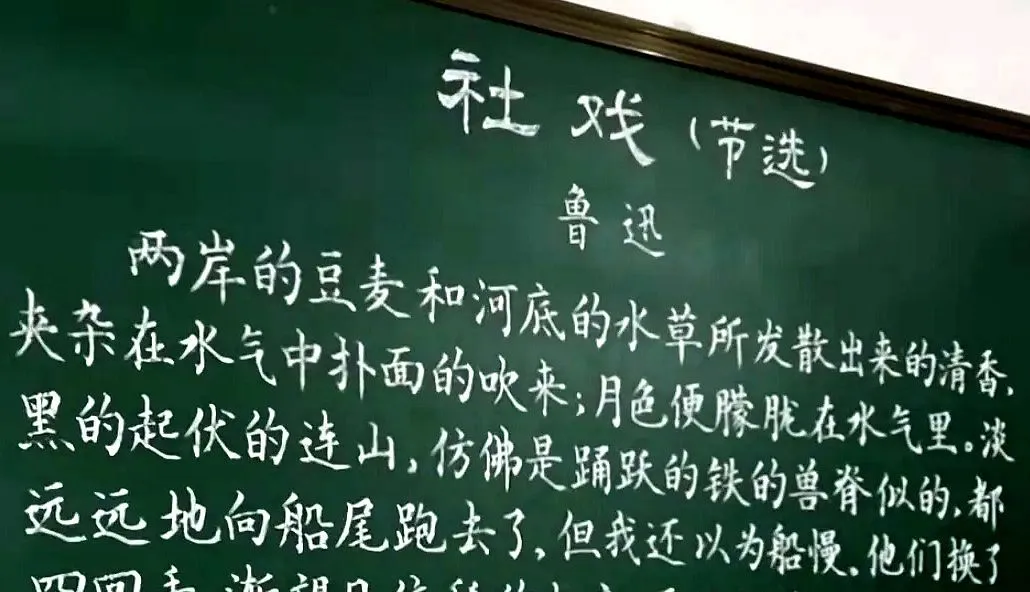 社戏（节选）
鲁迅
两岸的豆麦和河底的水草所发散出来的清香，
夹杂在水气中扑面的吹来；月色便朦胧在水气里。淡
黑的起伏的连山，仿佛是踊跃的铁的兽脊似的，都
远远地向船尾跑去了，但我还以为船慢。他们换了
四回手，渐望见依稀的